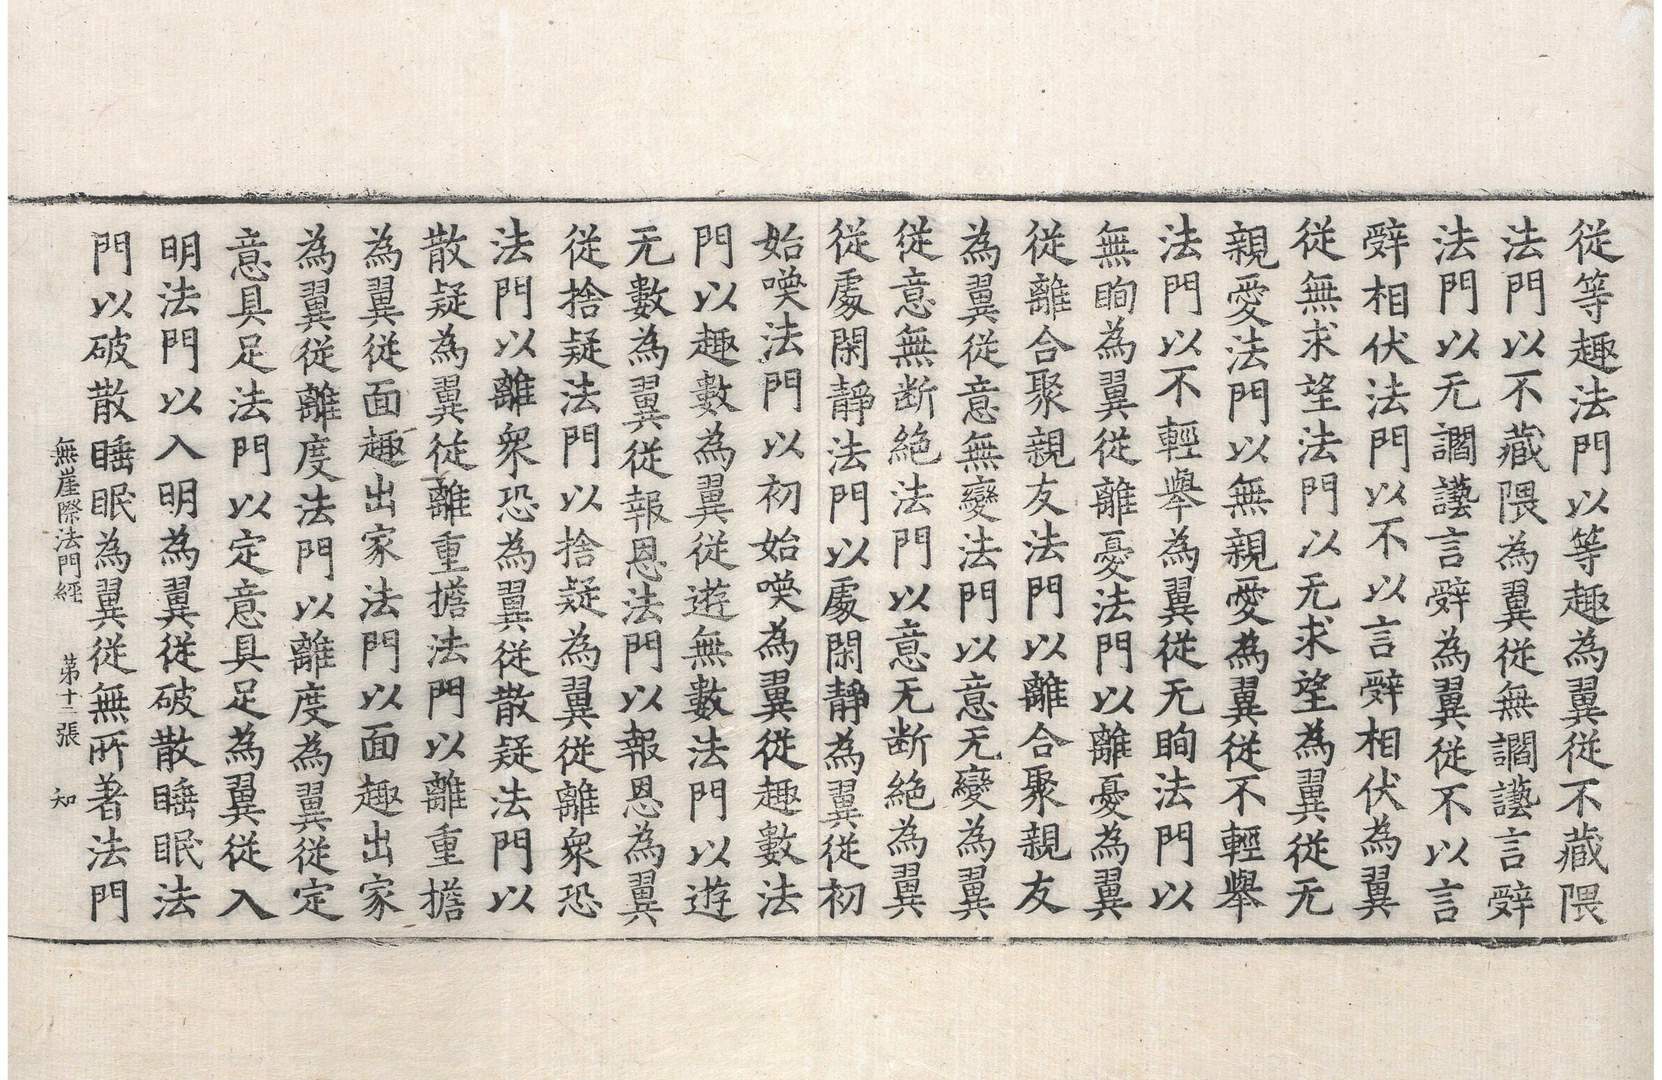 從等趣法門以等趣為翼從不藏隈
法門以不藏隈為翼從無讇讛言辤
法門以无讇讛言辤為翼從不以言
辤相伏法門以不以言辤相伏為翼
從無求望法門以无求望為翼從无
親愛法門以無親愛為翼從不輕舉
法門以不輕舉為翼從无眴法門以
無眴為翼從離憂法門以離憂為翼
從離合聚親友法門以離合聚親友
為翼從意無變法門以意无變為翼
從意無断絶法門以意无断絶為翼
從處閑靜法門以處閑靜為翼從初
始嘆法門以初始嘆為翼從趣數法
門以趣數為翼從遊無數法門以遊
无數為翼從報恩法門以報恩為翼
從捨疑法門以捨疑為翼從離衆恐
法門以離衆恐為翼從散疑法門以
散疑為翼從離重擔法門以離重擔
為翼從面趣出家法門以面趣出家
為翼從離度法門以離度為翼從定
意具足法門以定意具足為翼從入
明法門以入明為翼從破散睡眠法
門以破散睡眠為翼從無所著法門
無崖際法門經 第十二張 知